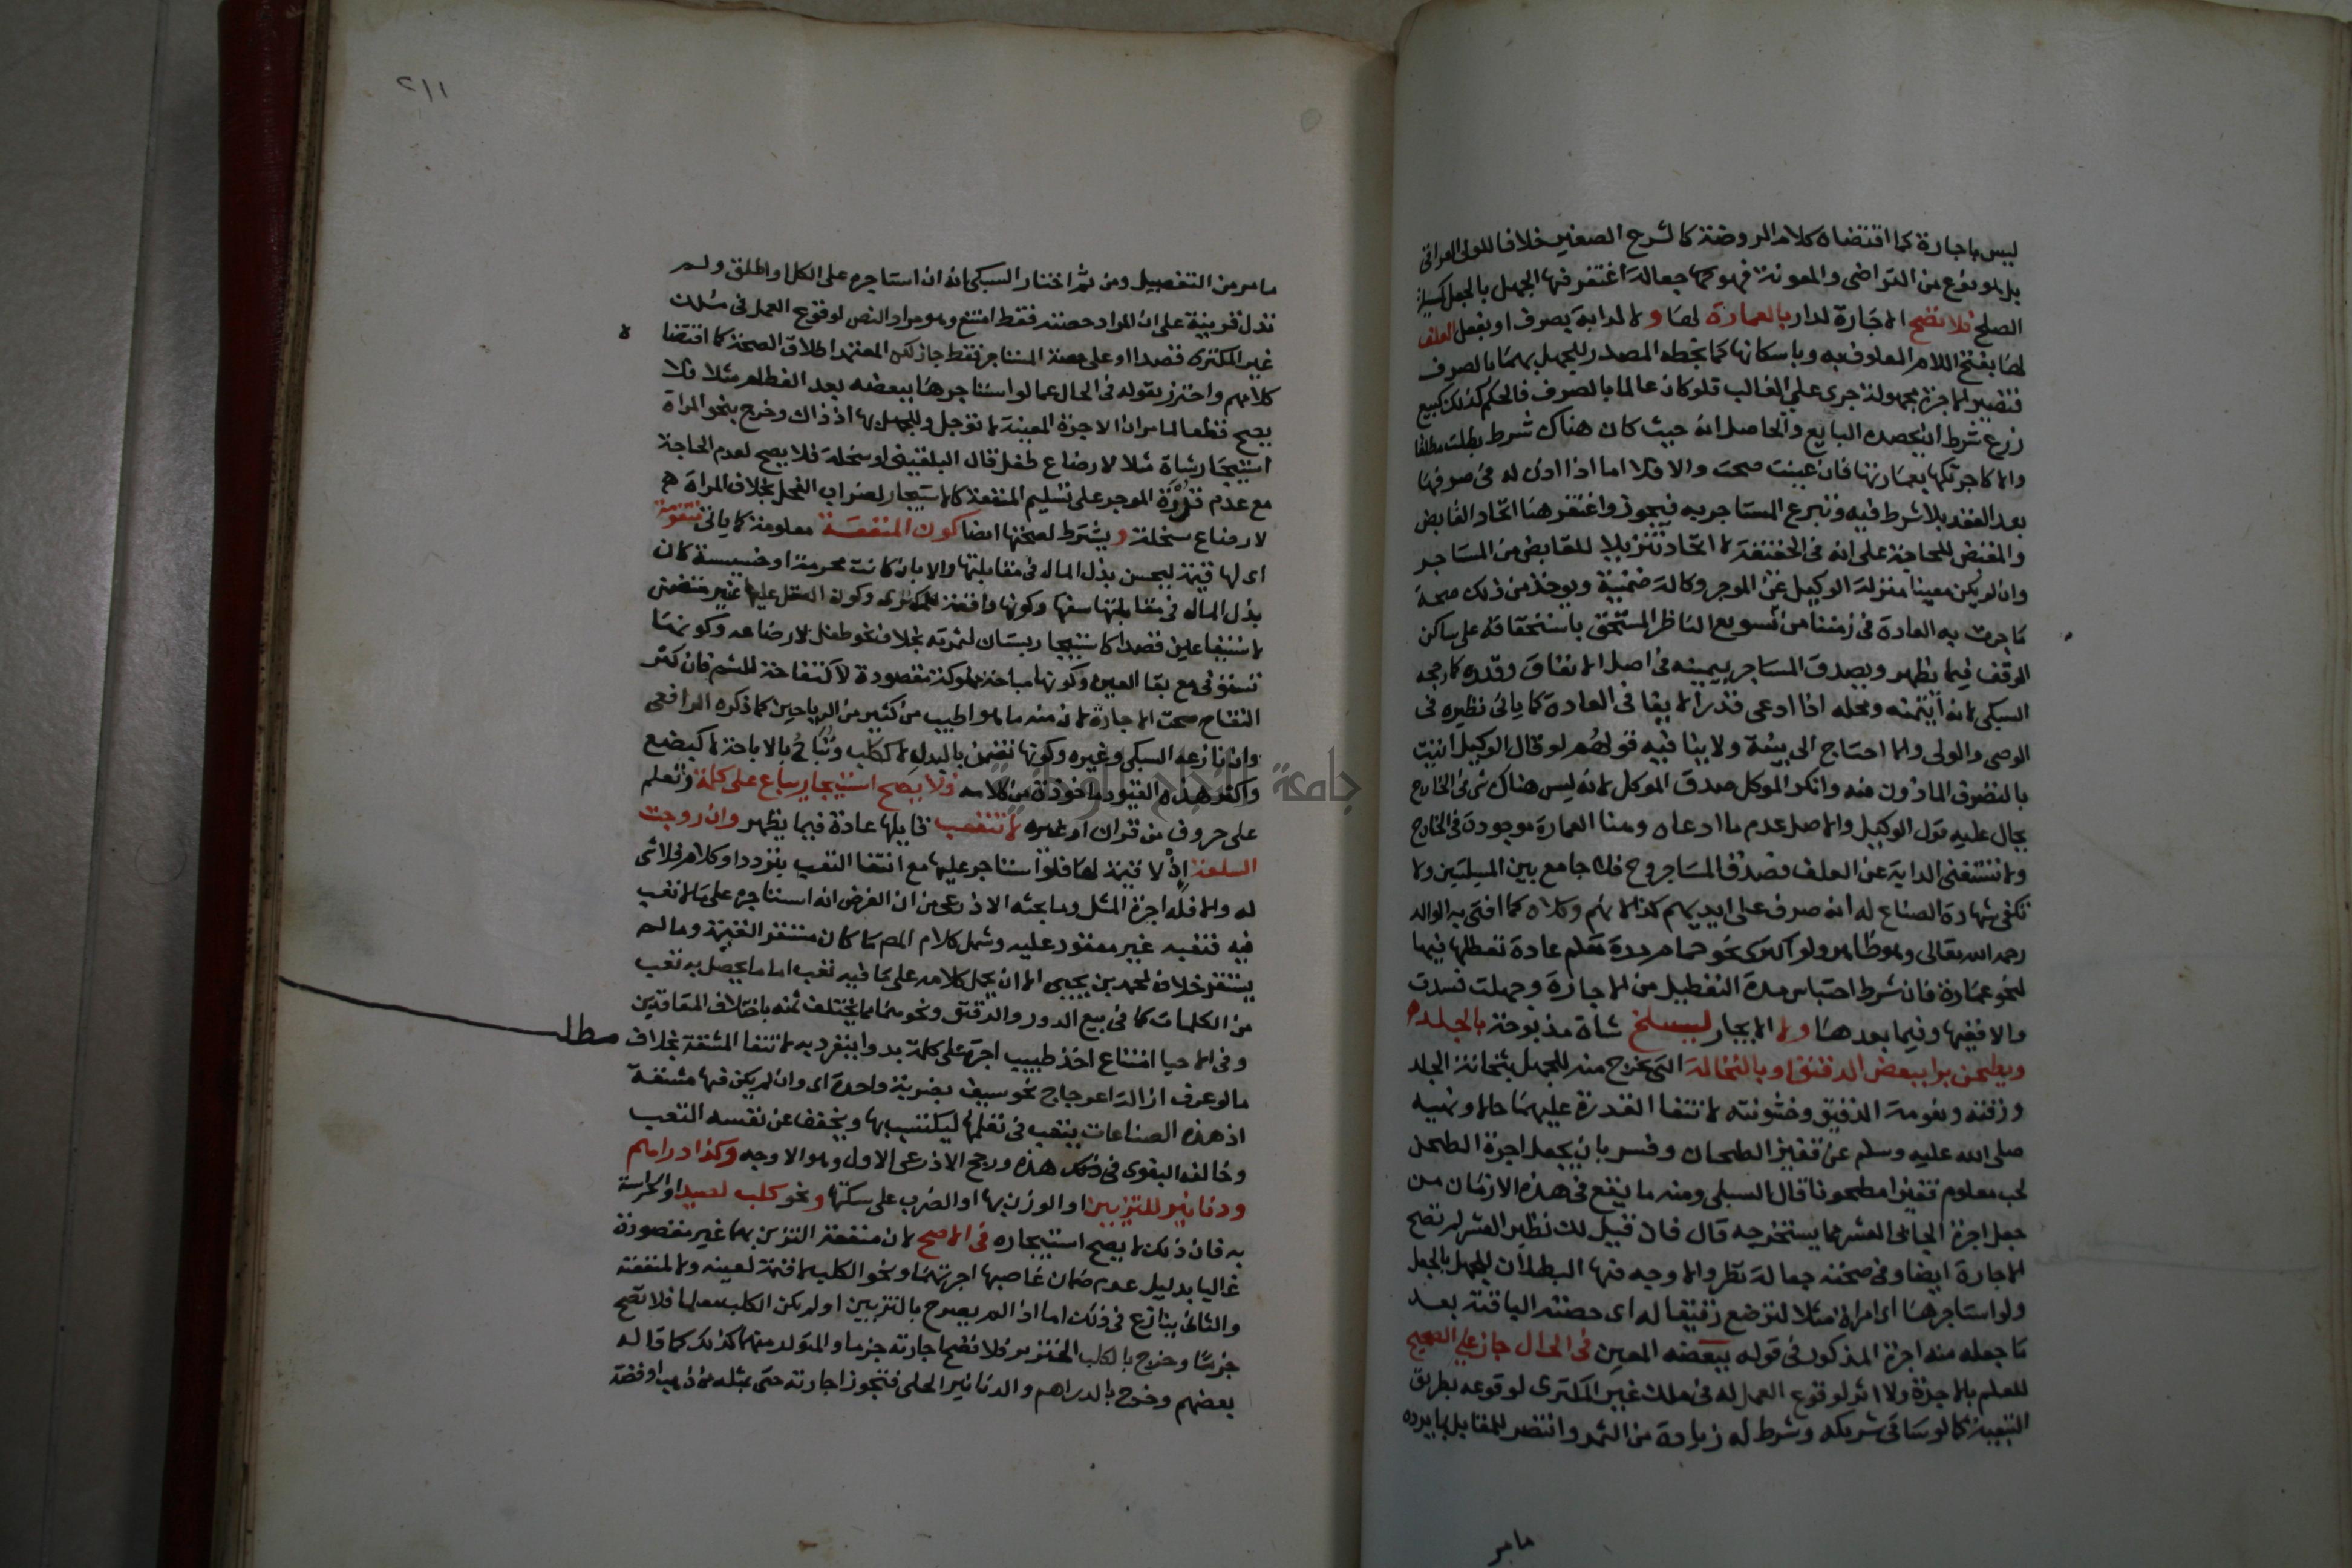 ليس باجارة كما اقتضاه كلام الروضة كالشرح الصغير خلافا للولي العراقي
بل هو نوع من التراضي والمعونة فهو كما جعالة اغتفر فيها الجهل بالجعل كمسئلة
الصلح فلا تصح الاجارة لدار بالعمارة لها ولا لدابة بصرف او بفعل العلف
لها بفتح اللام المعلوف به وباسكانها كما بخطه المصدر للجهل بهما بالصرف
فتصير الاجرة مجهولة جرى على الغالب فلو كان عالما بالصرف فالحكم كذلك كبيع
زرع شرط ان يحصده البايع والحاصل انه حيث كان هناك شرط بطلت مطلقا
والا كاجرتكها بعمارتها فان عينت صحت والا فلا اما اذا اذن له في صرفها
بعد العقد بلا شرط فيه وتبرع المستاجر به فيجوز واغتفر هنا اتحاد القابض
والمقبض للحاجة على انه في الحقيقة لا اتحاد تنزيلا للقابض من المستاجر
وان لم يكن معينا منزلة الوكيل عن الموجر وكالة ضمنية ويوخذ من ذلك صحة
ما جرت به العادة في زمننا من تسويع الناظر المستحق باستحقاقه على ساكن
الوقف فيما يظهر ويصدق المستاجر بيمينه في اصل الانفاق وقدره كما رجحه
السبكي لانه ائتمنه ومحله اذا ادعى قدرا لايقا في العادة كما ياتي نظيره في
الوصي والولي والا احتاج الى بينة ولا ينافيه قولهم لو قال الوكيل اتيت
بالتصرف الماذون فيه وانكر الموكل صدق الموكل لانه ليس هناك شي في الخارج
يحال عليه قول الوكيل والاصل عدم ما ادعاه وهنا العمارة موجودة في الخارج
ولا تستغني الدابة عن العلف فصدق المستاجر وح فلا جامع بين المسيلتين ولا
تكفي شهادة الصناع له انه صرف على ايديهم كذا لانهم وكلاه كما افتى به الوالد
رحمه الله تعالى وهو ظاهر ولو اكترى نحو حمام مدة تعلم عادة تعطلها فيها
لنحو عمارة فان شرط احتباس مدة التعطيل من الاجارة وجهلت فسدت
والا ففيها وفيما بعدها ولا الايجار ليسلخ شاة مذبوحة بالجلد
ويطحن برا ببعض الدقيق او بالنخالة التي تخرج منه للجهل بثخانة الجلد
ورقته ونعومة الدقيق وخشونته لانتفا القدرة عليهما حالا ونهيه
صلى الله عليه وسلم عن قفيز الطحان وفسر بان يجعل اجرة الطحن
لحب معلوم قفيزا مطحونا قال السبكي ومنه ما يقع في هذه الازمان من
جعل اجرة الجابي العشر مما يستخرجه قال فان قيل لك نظير العشر لم تصح
الاجارة ايضا وفي صحته جعالة نظر والاوجه فيها البطلان للجهل بالجعل
ولو استاجرها اي امراة مثلا لترضع رقيقا له اي حصته الباقية بعد
ما جعله منه اجرة المذكور في قوله ببعضه المعين في الحال جاز على الصحيح
للعلم بالاجرة ولا اثر لوقوع العمل له في ملك غير المكترى لوقوعه بطريق
التبعية كما لو ساقى شريكه وشرط له زيادة من الثمر وانتصر للمقابل بما يرده
مامر
٢١١
مامر من التفصيل ومن ثم اختار السبكي انه ان استاجره على الكل او اطلق ولم
تدل قرينة على ان المراد حصته فقط امتنع وهو مراد النص لوقوع العمل في ملك
غير المكترى قصدا او على حصة المستاجر فقط جاز لكن المعتمد اطلاق الصحة كما اقتضا
ه
كلامهم واحترز بقوله في الحال عما لو استاجرها ببعضه بعد الفطام مثلا فلا
يصح قطعا لما مر ان الاجرة المعينة لا توجل وللجهل بها اذ ذاك وخرج بنحو المراة
استيجار شاة مثلا لارضاع طفل قال البلقيني او سخلة فلا يصح لعدم الحاجة
مع عدم قدرة الموجر على تسليم المنفعة كالاستيجار لضراب الفحل بخلاف المراة
لارضاع سخلة ويشترط لصحتها ايضا كون المنفعة معلومة كما ياتي متقومة
اي لها قيمة ليحسن بذل المال في مقابلتها والا بان كانت محرمة او خسيسة كان
بذل المال في مقابلتها سفها وكونها واقعة للمكترى وكون العقد عليها غير متضمن
لاستيفا عين قصدا كاستيجار بستان لثمرته بخلاف نحو طفل لارضاعه وكونها
تستوفى مع بقا العين وكونها مباحة مملوكة مقصودة لا كتفاحة للشم فان كثر
التفاح صحت الاجارة لان منه ما هو اطيب من كثير من الرياحين كما ذكره الرافعي
وان نازعه السبكي وغيره وكونها تضمن بالبدل لا ككلب وتباح بالاباحة لا كبضع
واكثر هذه القيود ماخوذة من كلامه فلا يصح استيجار بياع على كلمة وتعلم
على حروف من قران او غيره لا تتعب قايلها عادة فيما يظهر وان روجت
السلعة اذ لا قيمة لها فلو استاجر عليها مع انتفا التعب بتردد او كلام فلا شي
له والا فله اجرة المثل وما بحثه الاذرعي من ان الفرض انه استاجره على ما لا تعب
فيه فتعبه غير معقود عليه وشمل كلام المص ما كان مستقر القيمة وما لم
يستقر خلافا لمحمد بن يحيى الا ان يحمل كلامه على ما فيه تعب اما ما يحصل به تعب
من الكلمات كما في بيع الدور والرقيق ونحوهما مما يختلف ثمنه باختلاف المتعاقدين
مطلب
وفي الاحيا امتناع اخذ طبيب اجرة على كلمة بدوا ينفرد به لانتفا المشقة بخلاف
ما لو عرف ازالة اعوجاج نحو سيف بضربة واحدة اي وان لم يكن فيها مشقة
اذ هذه الصناعات يتعب في تعلمها ليكتسب بها ويخفف عن نفسه التعب
وخالفه البغوي في ذلك هذه ورجح الاذرعي الاول وهو الاوجه وكذا دراهم
ودنانير للتزيين او الوزن بها او الضرب على سكتها ونحو كلب لصيد او الحراسة
به فان ذلك لا يصح استيجاره في الاصح لان منفعة التزين بهما غير مقصودة
غالبا بدليل عدم ضمان غاصبها اجرتهما ونحو الكلب لا قيمة لعينه ولا لمنفعته
والثاني ينازع في ذلك اما اذا لم يصرح بالتزيين او لم يكن الكلب معلما فلا تصح
جزما وخرج بالكلب الخنزير فلا تصح اجارته جزما والمتولد منهما كذلك كما قاله
بعضهم وخرج بالدراهم والدنانير الحلي فتجوز اجارته حتى بمثله من ذهب او فضة
جامعة النجاح الوطنية